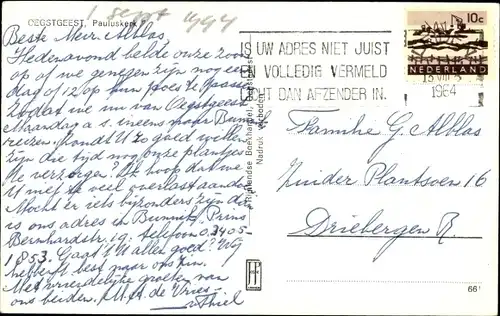 1 sept 1994
OEGSTGEEST, Pauluskerk
Beste Mevr. Alblas,
Hedenavond belde onze zoon
op of we genegen zijn nog een
dag of 12 op hun poes te passen
zodat we nu van Oegstgeest
Maandag a.s. ineens naar
reizen. Zoudt U zo goed willen
zijn die tijd nog onze plantjes
te verzorgen? Ik hoop dat we
U niet te veel overlast aandoen.
Mocht er iets bijzonders zijn dan
is ons adres in Bunnik, Prins
Bernhardstr. 19. telefoon 03405-
1853. Gaat 't U allen goed? Wij
hebben 't best naar ons zin.
Met vriendelijke groeten van
ons beiden. de Vries-
v. Thiel
Rijnlandse Boekhandel, Oegstgeest
Nadruk verboden
IS UW ADRES NIET JUIST
EN VOLLEDIG VERMELD
DAN AFZENDER IN.
1964
10c
NEDERLAND
Familie G. Alblas
Zuider Plantsoen 16
Driebergen R.
661